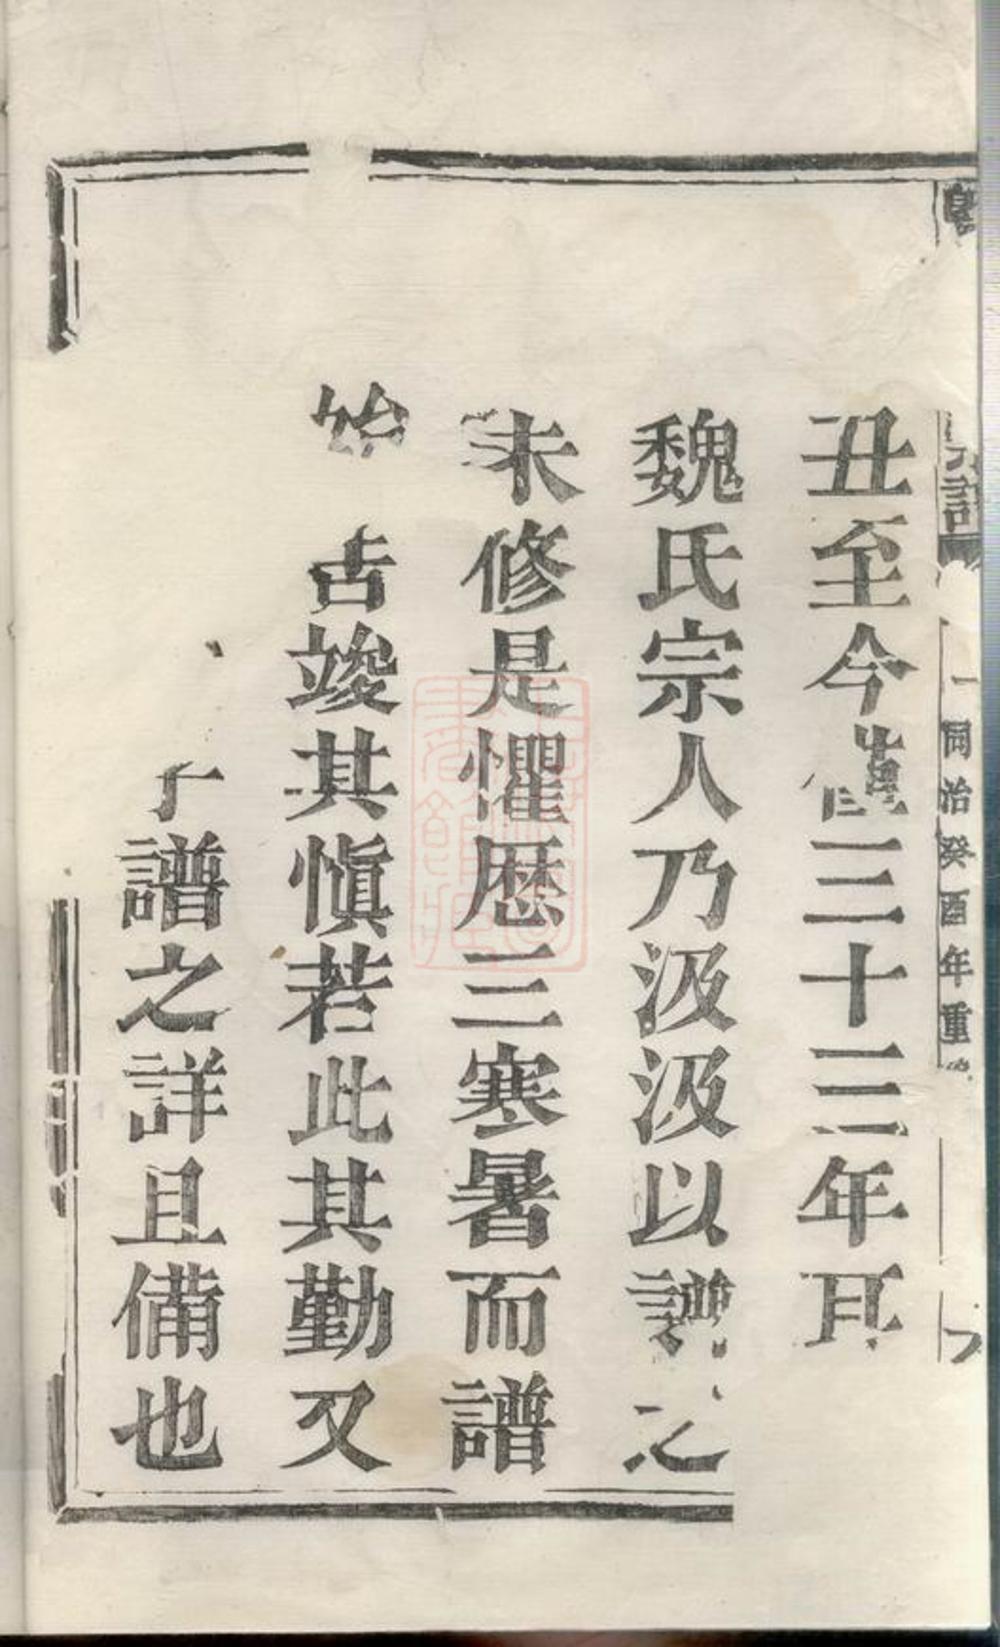 丑至今僅三十三年耳
魏氏宗人乃汲汲以譜之
未修是懼歴三寒暑而譜
始告竣其慎若此其勤又
子譜之詳且備也
一 同治癸酉年重